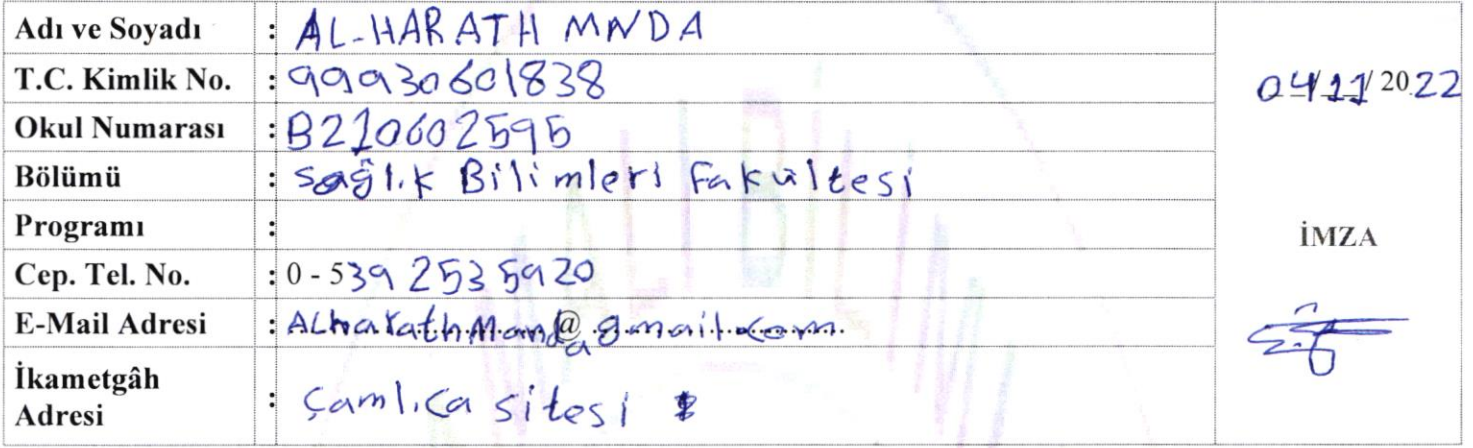 Adı ve Soyadı : AL-HARATH MNDA
T.C. Kimlik No. : 99930601838
04/11/2022
Okul Numarası : B210602595
Bölümü : Sağlık Bilimleri Fakültesi
Programı :
İMZA
Cep. Tel. No. : 0 - 539 253 5920
E-Mail Adresi : ALharathManda@gmail.com
İkametgâh
Adresi : Çamlıca sitesi